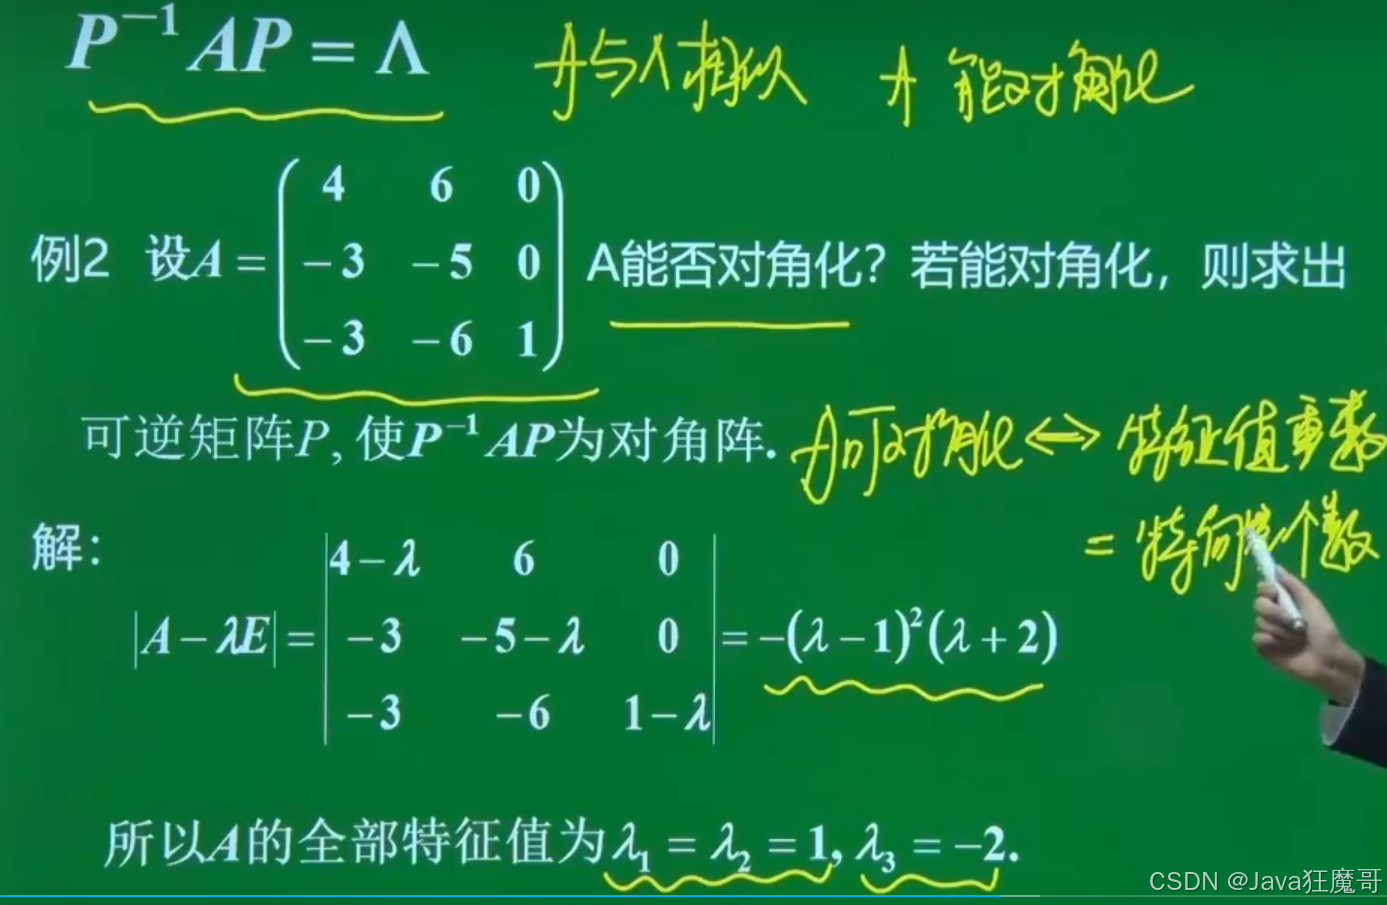 P⁻¹AP = Λ  A与Λ相似  A 能对角化
例2 设A = ( 4 6 0
-3 -5 0
-3 -6 1 ) A能否对角化？若能对角化，则求出
可逆矩阵P, 使P⁻¹AP为对角阵. A可对角化 ⟺ 特征值重数
= 特向量个数
解：
|A - λE| = | 4-λ 6 0
-3 -5-λ 0
-3 -6 1-λ | = -(λ-1)²(λ+2)
所以A的全部特征值为λ₁ = λ₂ = 1, λ₃ = -2.
CSDN @Java狂魔哥